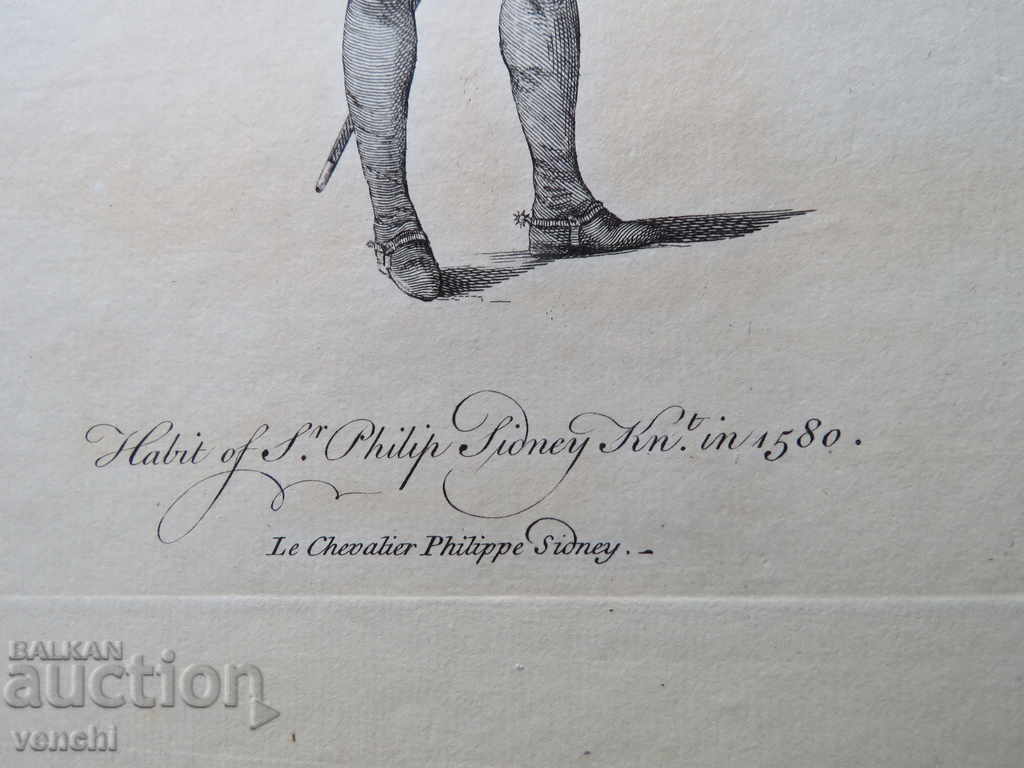 Habit of Sr. Philip Sidney Knt. in 1580.
Le Chevalier Philippe Sidney. -
BALKAN
auction
venchi